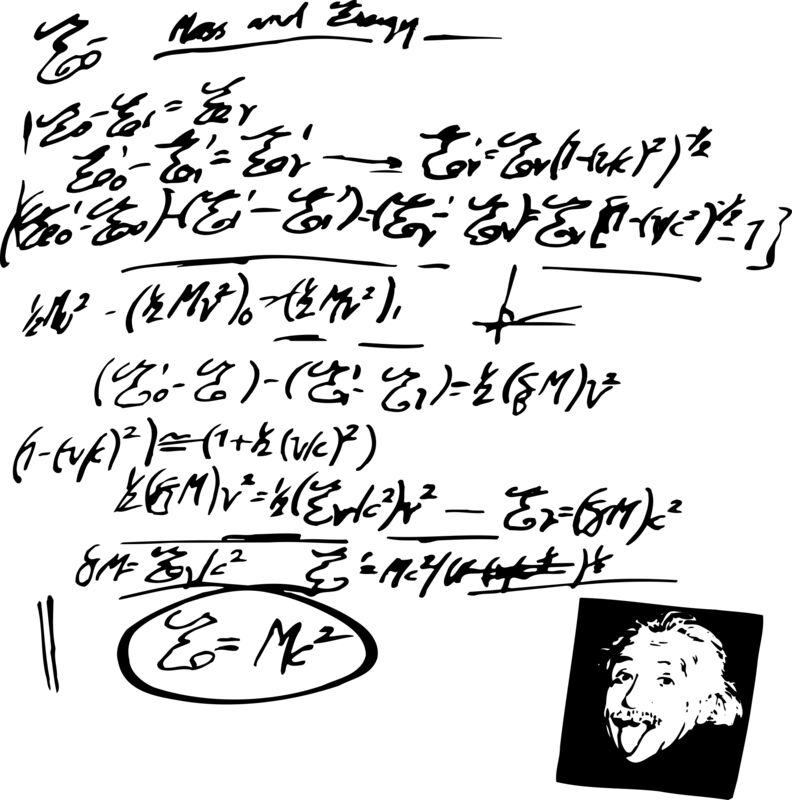 ℰ₀ Mass and Energy
ℰ₀ - ℰ₁ = ℰᵣ
ℰ₀' - ℰ₁' = ℰᵣ' → ℰᵣ' = ℰᵣ(1-(v/c)²)^-½
(ℰ₀' - ℰ₀) - (ℰ₁' - ℰ₁) = (ℰᵣ' - ℰᵣ) = ℰᵣ[(1-(v/c)²)^-½ - 1]
½Mv² - (½Mv²)₀ - (½Mv²)₁
(ℰ₀' - ℰ₀) - (ℰ₁' - ℰ₁) = ½(δM)v²
(1-(v/c)²) ≅ (1+½(v/c)²)
½(δM)v² = ½(ℰᵣ/c²)v² — ℰᵣ = (δM)c²
δM = ℰᵣ/c² ℰ' = Mc²/(
ℰ₀ = Mc²